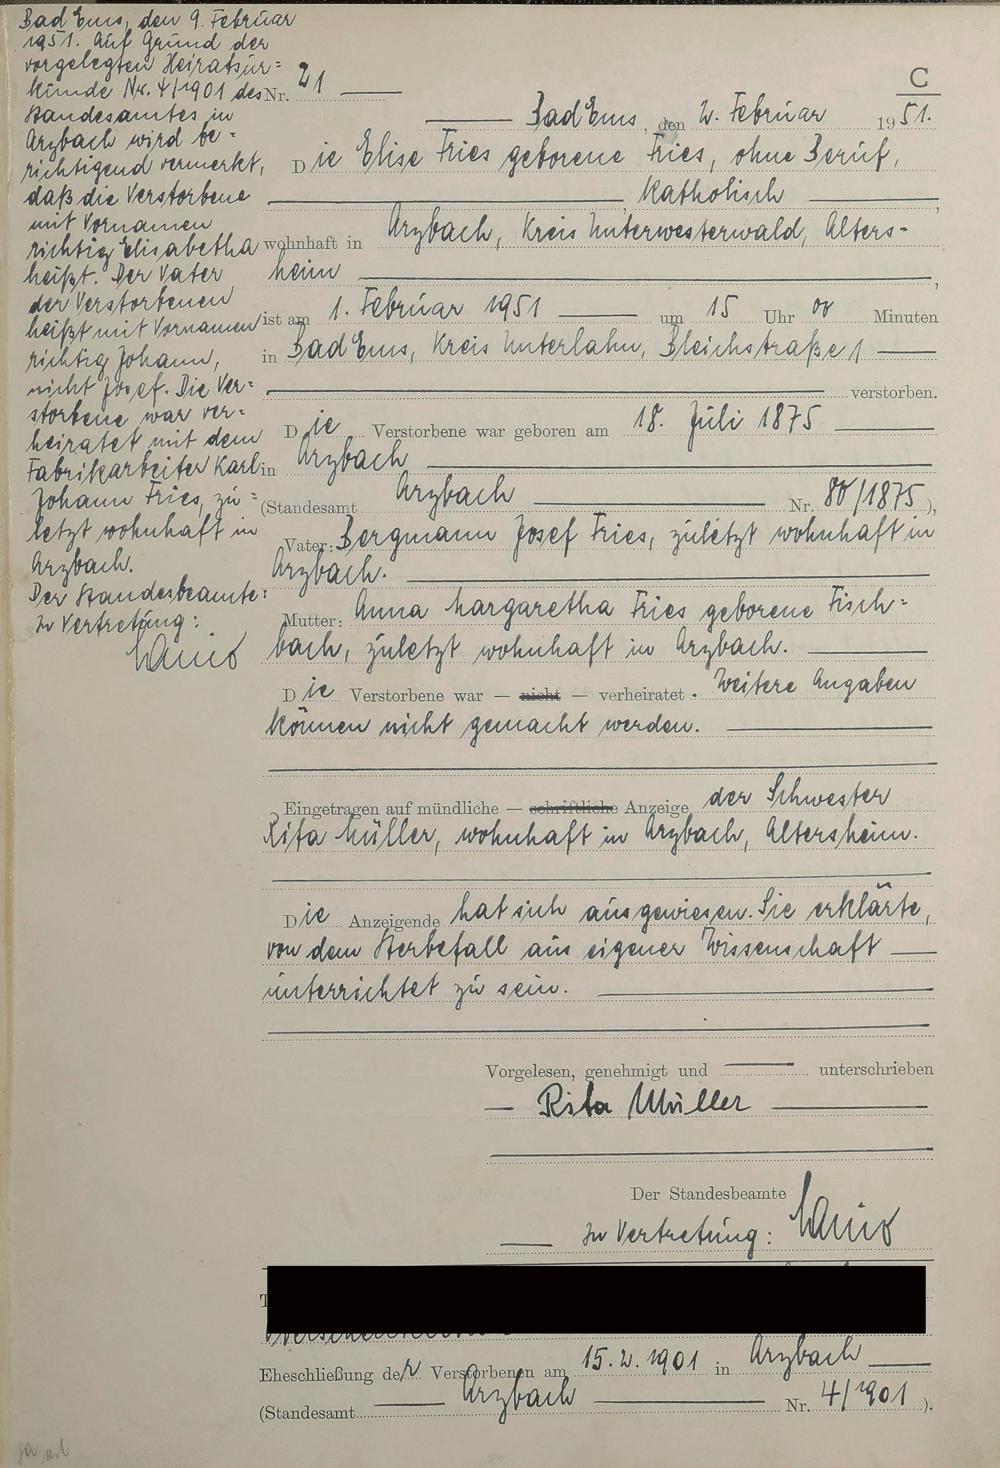 Bad Ems, den 9. Februar
1951. Auf Grund der
vorgelegten Heiratsur=
kunde Nr. 4/1901 des
Standesamtes in
Arzbach wird be=
richtigend vermerkt,
daß die Verstorbene
mit Vornamen
richtig Elisabetha
heißt. Der Vater
der Verstorbenen
heißt mit Vornamen
richtig Johann,
nicht Josef. Die Ver=
storbene war ver=
heiratet mit dem
Fabrikarbeiter Karl
Johann Fries, zu=
letzt wohnhaft in
Arzbach.
Der Standesbeamte:
In Vertretung:
C
Nr. 21
Bad Ems, den 2. Februar 1951.
Die Elise Fries geborene Fries, ohne Beruf,
, katholisch ,
wohnhaft in Arzbach, Kreis Unterwesterwald, Alters=
heim ,
ist am 1. Februar 1951 um 15 Uhr 00 Minuten
in Bad Ems, Kreis Unterlahn, Bleichstraße 1
verstorben.
Die Verstorbene war geboren am 18. Juli 1875
in Arzbach
(Standesamt Arzbach Nr. 80/1875),
Vater: Bergmann Josef Fries, zuletzt wohnhaft in
Arzbach.
Mutter: Anna Margaretha Fries geborene Fisch=
bach, zuletzt wohnhaft in Arzbach.
Die Verstorbene war — nicht — verheiratet. Weitere Angaben
können nicht gemacht werden.
Eingetragen auf mündliche — schriftliche Anzeige der Schwester
Rita Müller, wohnhaft in Arzbach, Altersheim.
Die Anzeigende hat sich ausgewiesen. Sie erklärte,
von dem Sterbefall aus eigener Wissenschaft
unterrichtet zu sein.
Vorgelesen, genehmigt und unterschrieben
Rita Müller
Der Standesbeamte
In Vertretung:
Eheschließung der Verstorbenen am 15.2.1901 in Arzbach
(Standesamt Arzbach Nr. 4/1901).